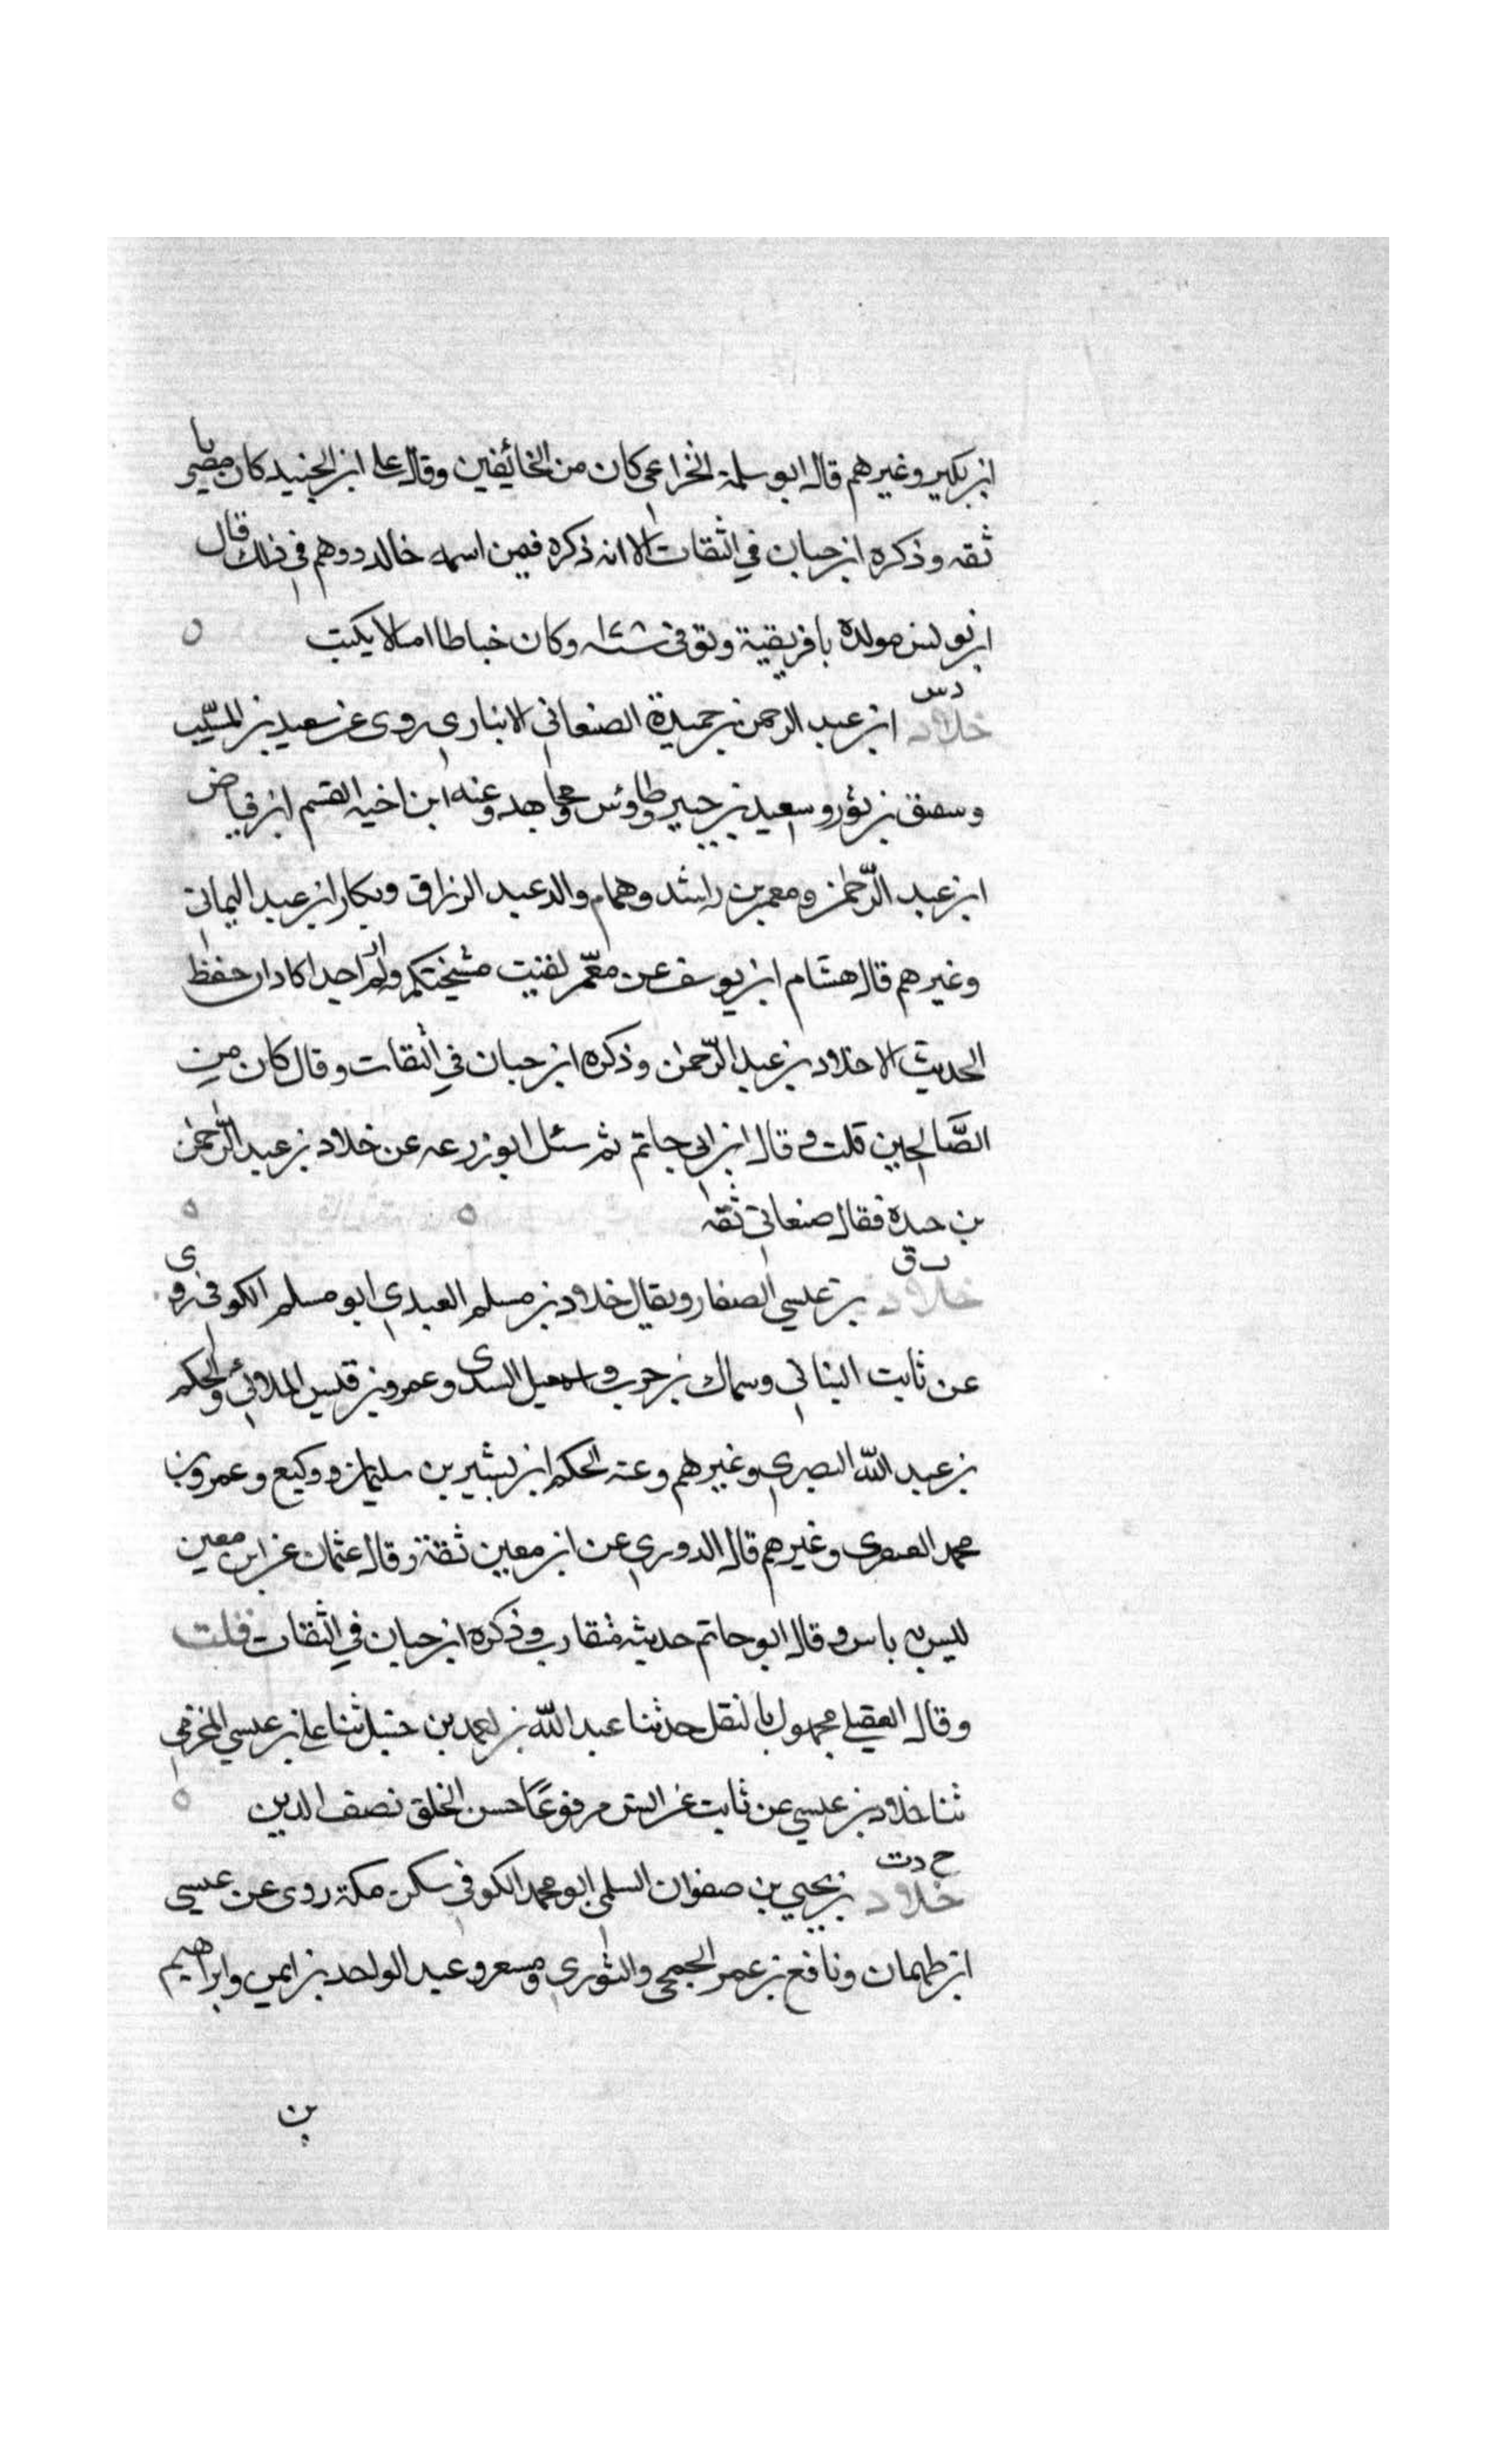 ابن بكير وغيرهم قال ابو سلمة الخزاعي كان من الخائفين وقال علي ابن الجنيد كان مصريا
ثقه وذكره ابن حبان في الثقات الا انه ذكره فيمن اسمه خالد ووهم في ذلك قال
ابن يونس مولده بافريقية وتوفي سنة وكان خياطا اميا لا يكتب
د س
خلاد ابن عبد الرحمن بن حميدة الصنعاني الابناري روى عن سعيد بن المسيب
وسقيق بن ثور وسعيد بن جبير وطاوس ومجاهد وعنه ابن اخيه القسم ابن فياض
ابن عبد الرحمن ومعمر بن راشد وهمام والد عبد الرزاق وبكار ابن عبد اليماني
وغيرهم قال هشام ابن يوسف عن معمر لقيت مشيختكم ولم ار احدا كاد ان حفظ
الحديث الا خلاد بن عبد الرحمن وذكره ابن حبان في الثقات وقال كان من
الصالحين قلت وقال ابن ابي حاتم ثم سئل ابو زرعه عن خلاد بن عبد الرحمن
بن حيدة فقال صنعاني ثقه
ت ق
خلاد بن عيسي الصفار ويقال خلاد بن مسلم العبدي ابو مسلم الكوفي روى
عن ثابت البناني وسماك بن حرب واسمعيل السدي وعمرو بن قيس الملائي والحكم
بن عبد الله البصري وغيرهم وعنه الحكم ابن بشير بن سليمان ووكيع وعمرو بن
محمد العنقري وغيرهم قال الدوري عن ابن معين ثقة وقال عثمان عن ابن معين
ليس به باس وقال ابو حاتم حديثه متقارب وذكره ابن حبان في الثقات قلت
وقال العقيلي مجهول بالنقل حدثنا عبد الله بن احمد بن حنبل ثنا علي بن عيسي المخرمي
ثنا خلاد بن عيسي عن ثابت عن انس مرفوعًا حسن الخلق نصف الدين
خ د ت
خلاد بن يحيي بن صفوان السلمي ابو محمد الكوفي سكن مكة روى عن عيسي
ابن طهمان ونافع بن عمر الجمحي والثوري ومسعر وعبد الواحد بن ايمن وابراهيم
بن